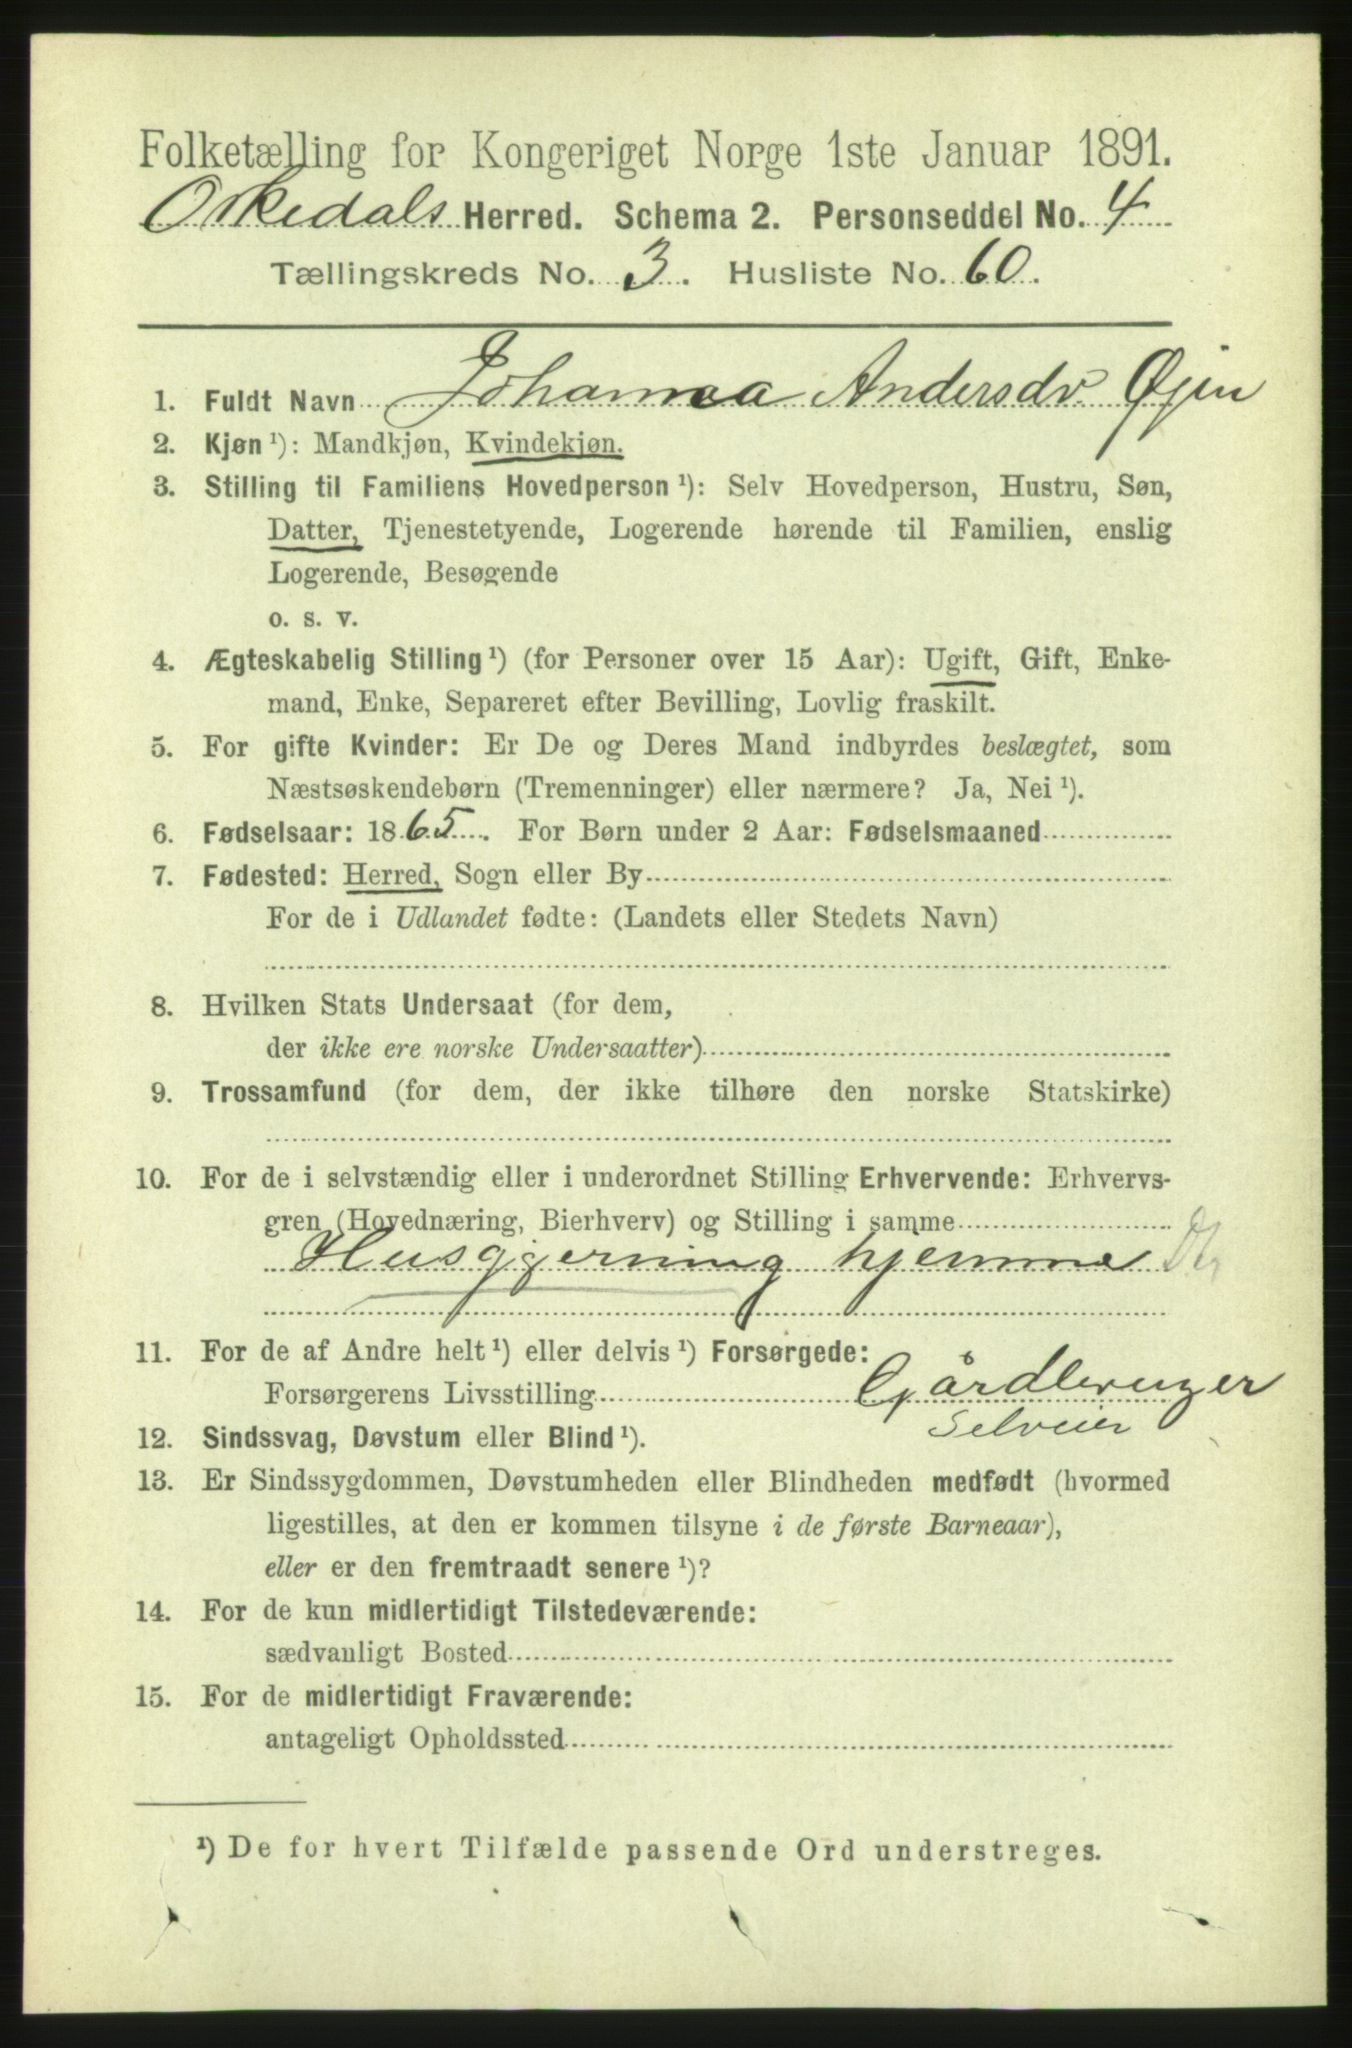 Folketælling for Kongeriget Norge 1ste Januar 1891.
Orkedals Herred. Schema 2. Personseddel No. 4
Tællingskreds No. 3. Husliste No. 60.
1. Fuldt Navn Johanna Andersdr Øjen
2. Kjøn ¹): Mandkjøn, Kvindekjøn.
3. Stilling til Familiens Hovedperson ¹): Selv Hovedperson, Hustru, Søn,
Datter, Tjenestetyende, Logerende hørende til Familien, enslig
Logerende, Besøgende
o. s. v.
4. Ægteskabelig Stilling ¹) (for Personer over 15 Aar): Ugift, Gift, Enke-
mand, Enke, Separeret efter Bevilling, Lovlig fraskilt.
5. For gifte Kvinder: Er De og Deres Mand indbyrdes beslægtet, som
Næstsøskendebørn (Tremenninger) eller nærmere? Ja, Nei ¹).
6. Fødselsaar: 1865. For Børn under 2 Aar: Fødselsmaaned
7. Fødested: Herred, Sogn eller By
For de i Udlandet fødte: (Landets eller Stedets Navn)
8. Hvilken Stats Undersaat (for dem,
der ikke ere norske Undersaatter)
9. Trossamfund (for dem, der ikke tilhøre den norske Statskirke)
10. For de i selvstændig eller i underordnet Stilling Erhvervende: Erhvervs-
gren (Hovednæring, Bierhverv) og Stilling i samme
Husgjerning hjemme
11. For de af Andre helt ¹) eller delvis ¹) Forsørgede:
Forsørgerens Livsstilling Gårdbruger
Selveier
12. Sindssvag, Døvstum eller Blind ¹).
13. Er Sindssygdommen, Døvstumheden eller Blindheden medfødt (hvormed
ligestilles, at den er kommen tilsyne i de første Barneaar),
eller er den fremtraadt senere ¹)?
14. For de kun midlertidigt Tilstedeværende:
sædvanligt Bosted
15. For de midlertidigt Fraværende:
antageligt Opholdssted
¹) De for hvert Tilfælde passende Ord understreges.